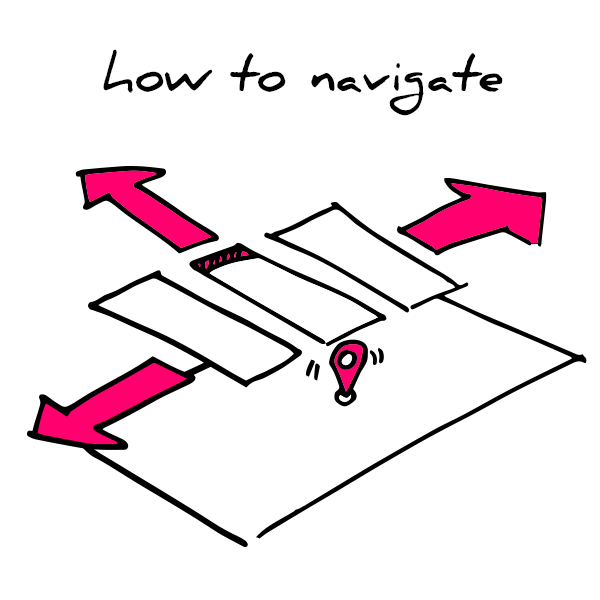 how to navigate